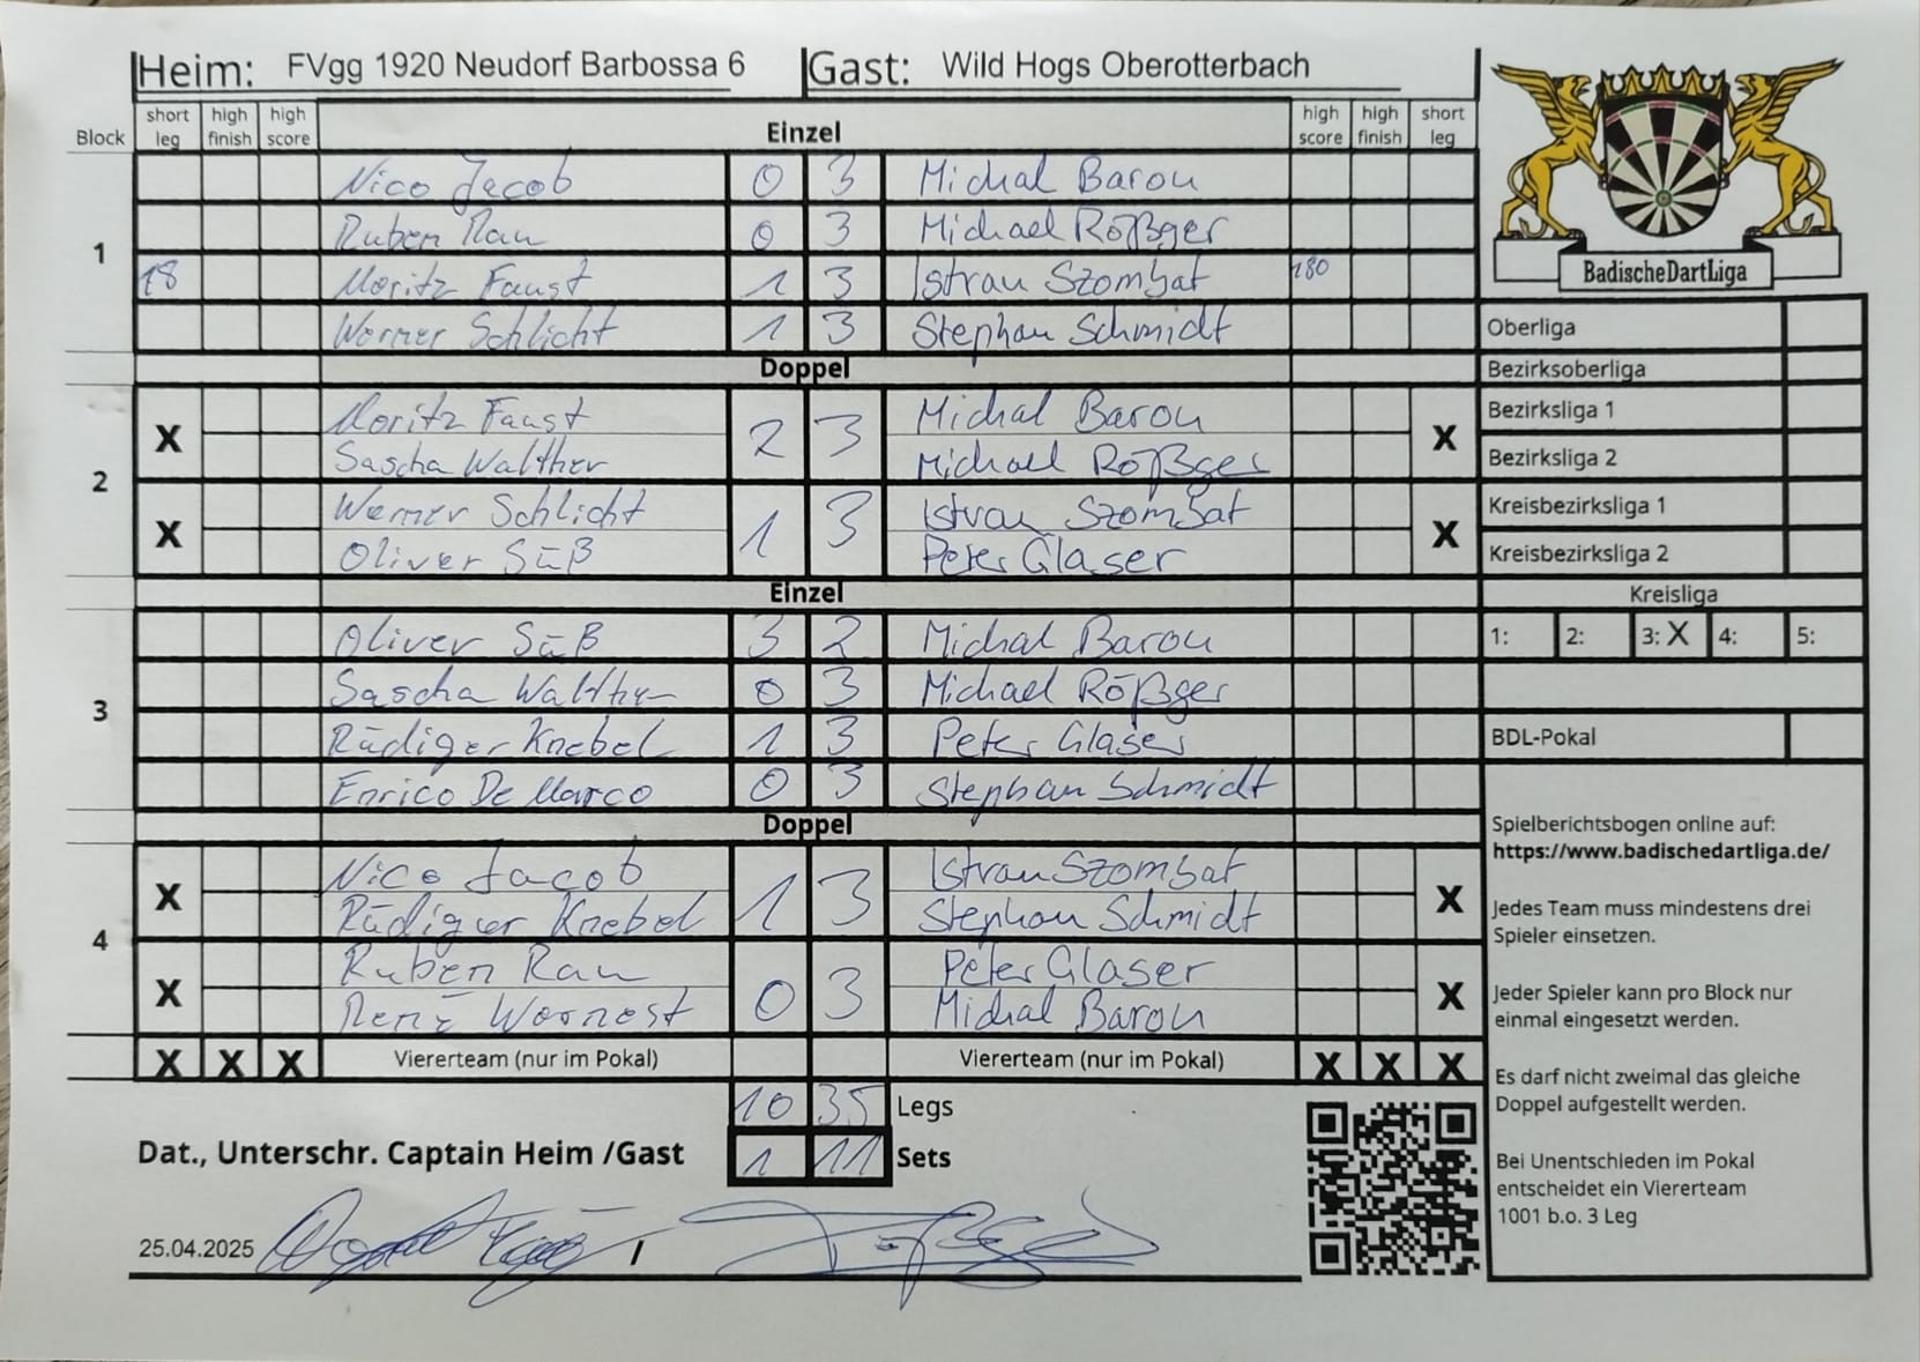 Heim: FVgg 1920 Neudorf Barbossa 6 Gast: Wild Hogs Oberotterbach
Block short leg high finish high score Einzel high score high finish short leg
Nico Jacob 0 3 Michal Barou
Ruben Rau 0 3 Michael Rößger
1
18 Moritz Faust 1 3 Istvan Szombat 180
Werner Schlicht 1 3 Stephan Schmidt
Doppel
2
X Moritz Faust 2 3 Michal Barou X
Sascha Walther Michael Rößger
X Werner Schlicht 1 3 Istvan Szombat X
Oliver Süß Peter Glaser
Einzel
3
Oliver Süß 3 2 Michal Barou
Sascha Walther 0 3 Michael Rößger
Rüdiger Knebel 1 3 Peter Glaser
Enrico De Marco 0 3 Stephan Schmidt
Doppel
4
X Nico Jacob 1 3 Istvan Szombat X
Rüdiger Knebel Stephan Schmidt
X Ruben Rau 0 3 Peter Glaser X
René Michal Barou
X X X Viererteam (nur im Pokal) Viererteam (nur im Pokal) X X X
10 35 Legs
Dat., Unterschr. Captain Heim /Gast 1 11 Sets
25.04.2025 /
BadischeDartLiga
Oberliga
Bezirksoberliga
Bezirksliga 1
Bezirksliga 2
Kreisbezirksliga 1
Kreisbezirksliga 2
Kreisliga
1: 2: 3: X 4: 5:
BDL-Pokal
Spielberichtsbogen online auf:
https://www.badischedartliga.de/
Jedes Team muss mindestens drei
Spieler einsetzen.
Jeder Spieler kann pro Block nur
einmal eingesetzt werden.
Es darf nicht zweimal das gleiche
Doppel aufgestellt werden.
Bei Unentschieden im Pokal
entscheidet ein Viererteam
1001 b.o. 3 Leg